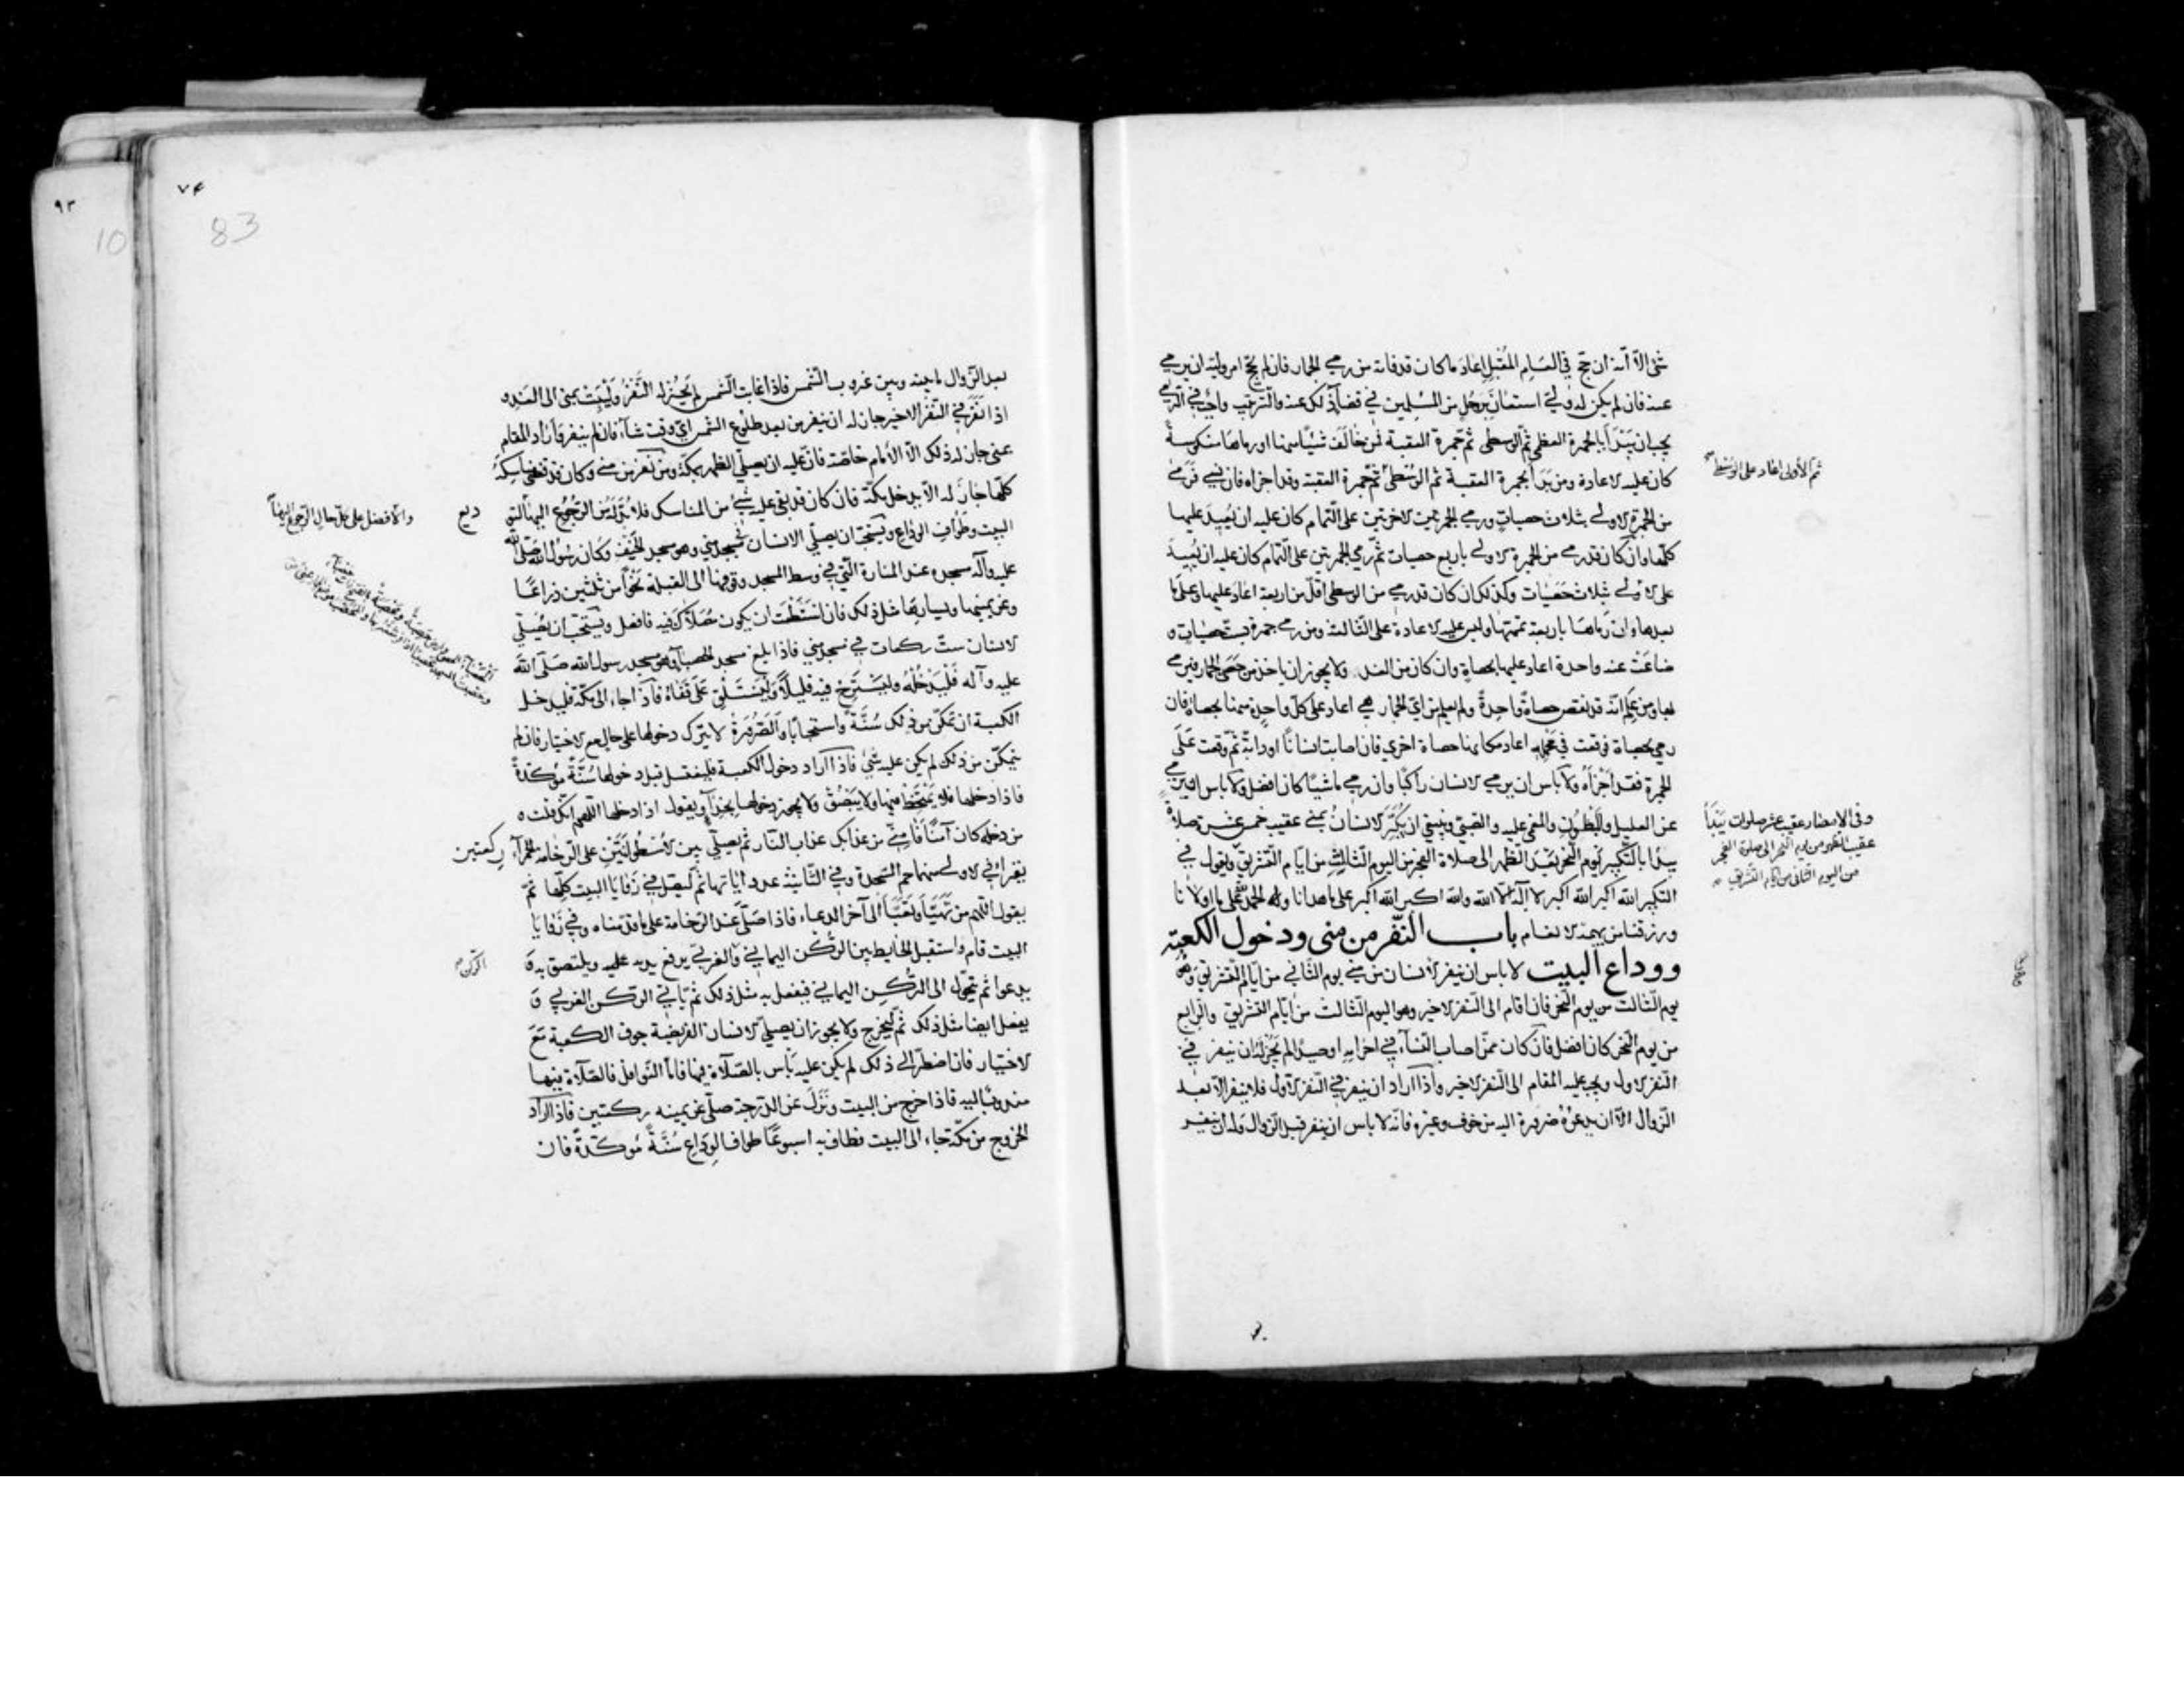 شئ الا انه ان حج في العام المقبل اعاد ما كان قد فاته من رمي الجمار فان لم يحج امر وليه ان يرمي
عنه فان لم يكن له ولي استعان برجل من المسلمين في قضاء ذلك عنه والترتيب واجب في الرمي
يجب ان يبدأ بالجمرة العظمى ثم الوسطى ثم جمرة العقبة فمن خالف شيئا منها او رماها منكوسة
كان عليه الاعادة ومن بدأ بجمرة العقبة ثم الوسطى ثم جمرة العقبة وقد اجزاه فان نسي فرمى
ثم الأولى اعاد على الوسطى
من الجمرة الاولى بثلاث حصيات ورمي الجمرتين الاخرتين على التمام كان عليه ان يعيد عليها
كلها وان كان قد رمي من الجمرة الاولى باربع حصيات ثم رمي الجمرتين على التمام كان عليه ان يعيد
على الاولى بثلاث حصيات وكذلك ان كان قد رمي من الوسطى اقل من اربعة اعاد عليها وعلى ما
بعدها وان رماها باربعة تممها وليس عليه الاعادة على الثالثة ومن رمي جمرة بست حصيات و
ضاعت عنه واحدة اعاد عليها بحصاة وان كان من الغد ولا يجوز ان ياخذ من حصى الجمار فيرمي
بها ومن علم انه قد نقص حصاة واحدة ولم يعلم من اي الجمار هي اعاد على كل واحدة منها بحصاة فان
رمي بحصاة فوقعت في محمله اعاد مكانها حصاة اخرى فان اصابت انسانا او دابة ثم وقعت على
الجمرة فقد اجزأه ولا بأس ان يرمي الانسان راكبا وان رمي ماشيا كان افضل ولا باس ان يرمي
عن العليل والمبطون والمغمى عليه والصبي وينبغي ان يكبر الانسان بمنى عقيب خمس عشرة صلاة
وفي الامصار عقيب عشر صلوات يبدأ
عقيب الظهر من يوم النحر الى صلوة الفجر
من اليوم الثاني من ايام التشريق
يبدا بالتكبير يوم النحر بعد الظهر الى صلاة الفجر من اليوم الثالث من ايام التشريق ويقول في
التكبير الله اكبر الله اكبر لا اله الا الله والله اكبر الله اكبر على ما هدانا وله الحمد على ما اولانا
ورزقنا من بهيمة الانعام باب النفر من منى ودخول الكعبة
ووداع البيت لا باس ان ينفر الانسان من منى يوم الثاني من ايام التشريق وهو
يوم الثالث من يوم النحر فان اقام الى النفر الاخير وهو اليوم الثالث من ايام التشريق والرابع
من يوم النحر كان افضل فان كان ممن اصاب النساء في احرامه او صيدا لم يجز له ان ينفر في
النفر الاول ويجب عليه المقام الى النفر الاخير واذا اراد ان ينفر في النفر الاول فلا ينفر الا بعد
الزوال الا ان يدعوه ضرورة اليه من خوف وغيره فانه لا باس ان ينفر قبل الزوال وله ان ينفر
٩٣
10
83
بعد الزوال ما بينه وبين غروب الشمس فاذا غابت الشمس لم يجز له النفر وليبت بمنى الى الغد و
اذا نفر في النفر الاخير جاز له ان ينفر من بعد طلوع الشمس اي وقت شاء فان لم ينفر واراد المقام
بمنى جاز له ذلك الا الامام خاصة فان عليه ان يصلي الظهر بمكة ومن نفر من منى وكان قد قضى مناسكه
كلها جاز له الا يدخل مكة فان كان قد بقي عليه شئ من المناسك فلا بد له من الرجوع اليها
والافضل على كل حال الرجوع اليها
البيت وطواف الوداع ويستحب ان يصلي الانسان في مسجد منى وهو مسجد الخيف وكان رسول الله صلى الله
عليه وآله مسجده عند المنارة التي في وسط المسجد وفوقها الى القبلة نحوا من ثلثين ذراعا
وعن يمينها ويسارها مثل ذلك فان استطعت ان يكون مصلاك فيه فافعل ويستحب ان يصلي
الانسان ست ركعات في مسجد منى فاذا بلغ مسجد الحصباء وهو مسجد رسول الله صلى الله
عليه وآله فليدخله وليسترح فيه قليلا وليستلق على قفاه فاذا جاء الى مكة فليدخل
الكعبة ان تمكن من ذلك سنة واستحبابا والصرورة لا يترك دخولها على حال مع الاختيار فان لم
يتمكن من ذلك لم يكن عليه شئ فاذا اراد دخول الكعبة فليغتسل قبل دخولها سنة مؤكدة
فاذا دخلها فلا يمتخط فيها ولا يبصق ولا يجوز دخولها بحذاء ويقول اذا دخلها اللهم انك قلت و
من دخله كان آمنا فآمني من عذابك عذاب النار ثم يصلي بين الاسطوانتين على الرخامة الحمراء ركعتين
يقرأ في الاولى منهما حم السجدة وفي الثانية عدد آياتها ثم ليصل في زوايا البيت كلها ثم
يقول اللهم من تهيأ وتعبأ الى آخر الدعاء فاذا صلى عند الرخامة على ما قدمناه وفي زوايا
البيت قام واستقبل الحايط بين الركن اليماني والغربي يرفع يديه عليه ويلتصق به و
يدعو ثم يتحول الى الركن اليماني فيفعل به مثل ذلك ثم ياتي الركن الغربي و
يفعل ايضا مثل ذلك ثم ليخرج ولا يجوز ان يصلي الانسان الفريضة جوف الكعبة مع
الاختيار فان اضطر الى ذلك لم يكن عليه بأس بالصلاة فيها فاما النوافل فالصلاة فيها
مندوب اليه فاذا خرج من البيت ونزل عن الدرجة صلى عن يمينه ركعتين فاذا اراد
الخروج من مكة جاء الى البيت فطاف به اسبوعا طواف الوداع سنة مؤكدة فان